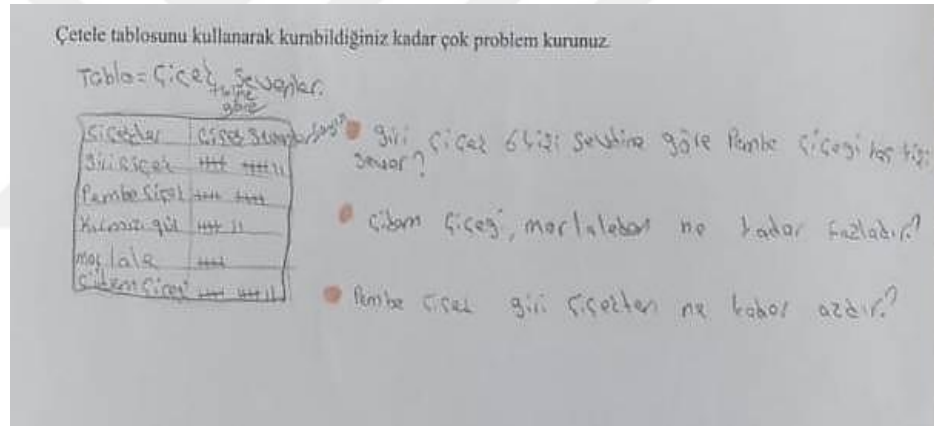 Çetele tablosunu kullanarak kurabildiğiniz kadar çok problem kurunuz.
Tablo= Çiçek Sevenler.
türüne
göre
Çiçekler Çiçek
Giri Çiçek 卌 卌 ||
Pembe Çiçek 卌 卌
Kırmızı gül 卌 ||
mor lale 卌
Çidem Çiçeği 卌 卌 ||
giri Çiçek 6 kişi göre Pembe Çiçeği kaç kişi
Sever?
Çidem Çiçeği, morlaleden ne kadar fazladır?
Pembe Çiçek giri Çiçekten ne kadar azdır?